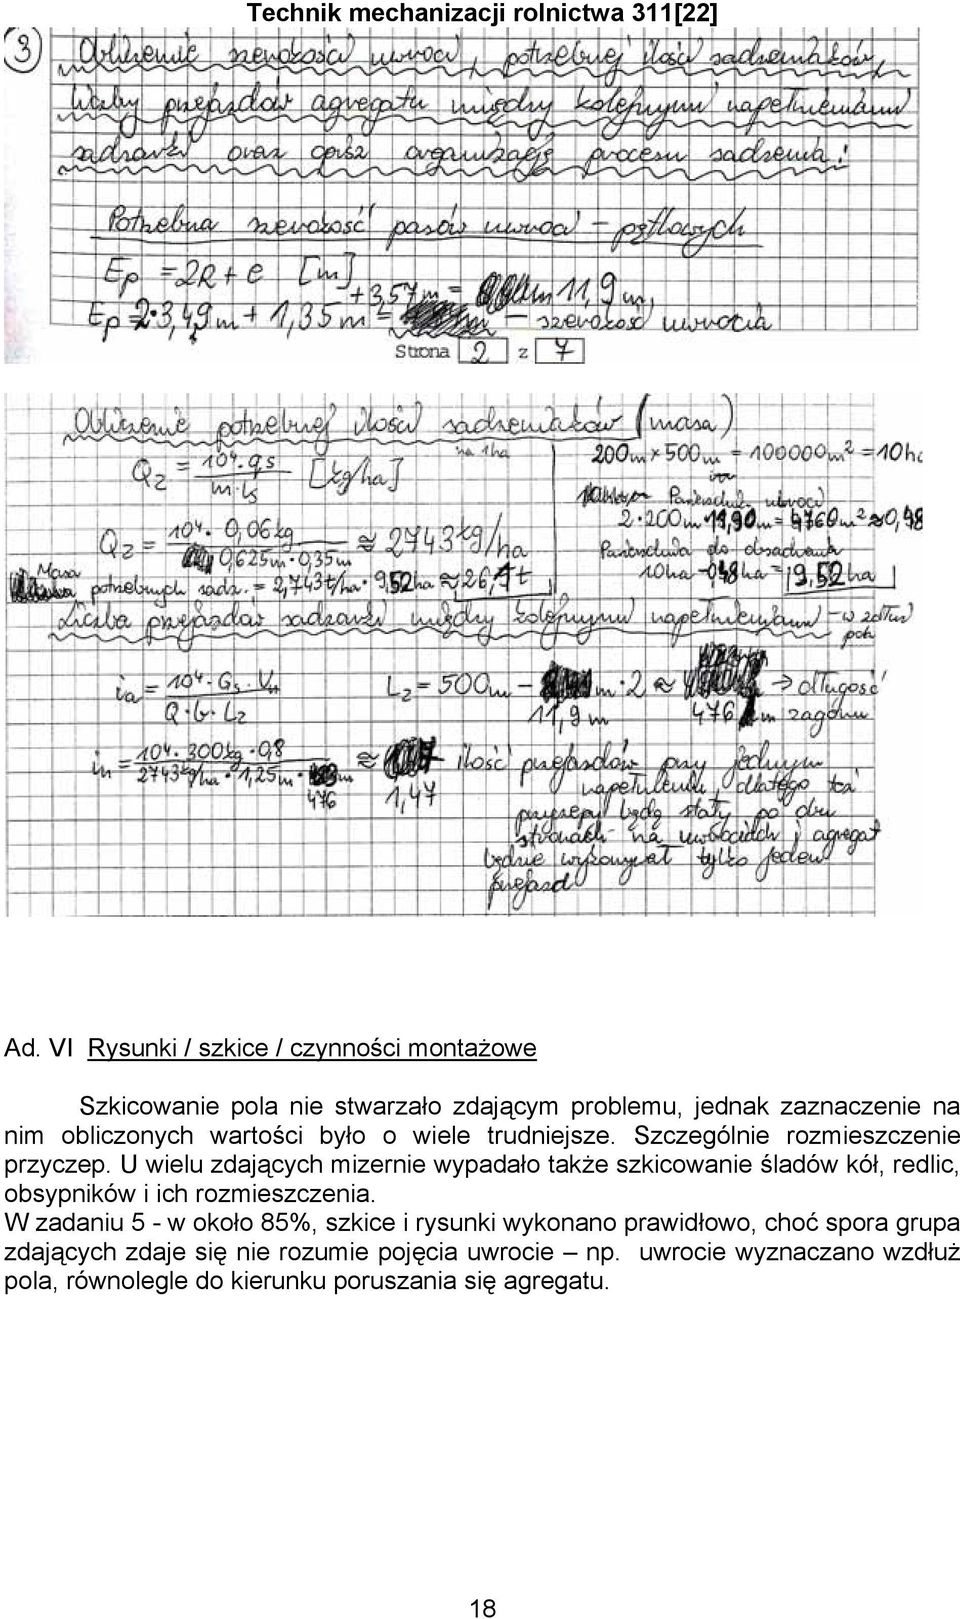 Technik mechanizacji rolnictwa 311[22]
3) Obliczenie szerokości uwroci, potrzebnej ilości sadzeniaków,
liczby przejazdów agregatu między kolejnymi napełnieniami
sadzarki oraz opisz organizację procesu sadzenia:
Potrzebna szerokość pasów uwroci - pętlowych
Ep = 2R + e [m]
Ep = 2·3,49m + 1,35m + 3,57m = 11,9m - szerokość uwrocia
Strona 2 z 7
Obliczenie potrzebnej ilości sadzeniaków (masa)
na 1ha
Qz = 10⁴·qs / m·ls [kg/ha]
200m × 500m = 100000m² = 10ha
Powierzchnia uwroci
2·200m·11,90m = 4760m² ≈ 0,48
Qz = 10⁴·0,06kg / 0,625m·0,35m ≈ 2743kg/ha
Powierzchnia do obsadzenia
10ha - 0,48ha = 9,52ha
Masa potrzebnych sadz. = 2,743t/ha · 9,52ha ≈ 26,1t
Liczba przejazdów sadzarki między kolejnymi napełnieniami - w zdłuż pola
in = 10⁴·Gs·Vn / Q·b·Lz
Lz = 500m - 11,9m·2 ≈ 476m → długość zagonu
in = 10⁴·300kg·0,8 / 2743kg/ha·1,25m·476m ≈ 1,47
ilość przejazdów przy jednym
napełnieniu, dlatego też
przyczepy będą stały po obu
stronach na uwrociach i agregat
będzie wykonywał tylko jeden
przejazd
Ad. VI Rysunki / szkice / czynności montażowe
Szkicowanie pola nie stwarzało zdającym problemu, jednak zaznaczenie na
nim obliczonych wartości było o wiele trudniejsze. Szczególnie rozmieszczenie
przyczep. U wielu zdających mizernie wypadało także szkicowanie śladów kół, redlic,
obsypników i ich rozmieszczenia.
W zadaniu 5 - w około 85%, szkice i rysunki wykonano prawidłowo, choć spora grupa
zdających zdaje się nie rozumie pojęcia uwrocie – np. uwrocie wyznaczano wzdłuż
pola, równolegle do kierunku poruszania się agregatu.
18